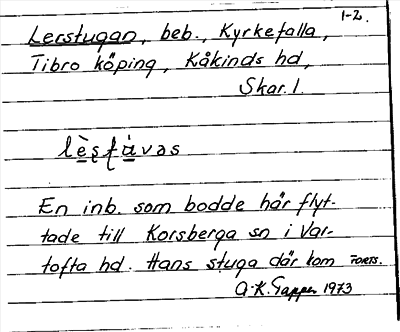 1-2.
Lerstugan, beb., Kyrkefalla,
Tibro köping, Kåkinds hd,
Skar. l.
En inb. som bodde här flyt-
tade till Korsberga sn i Var-
tofta hd. Hans stuga där kom FORTS.
A-K. Tapper 1973